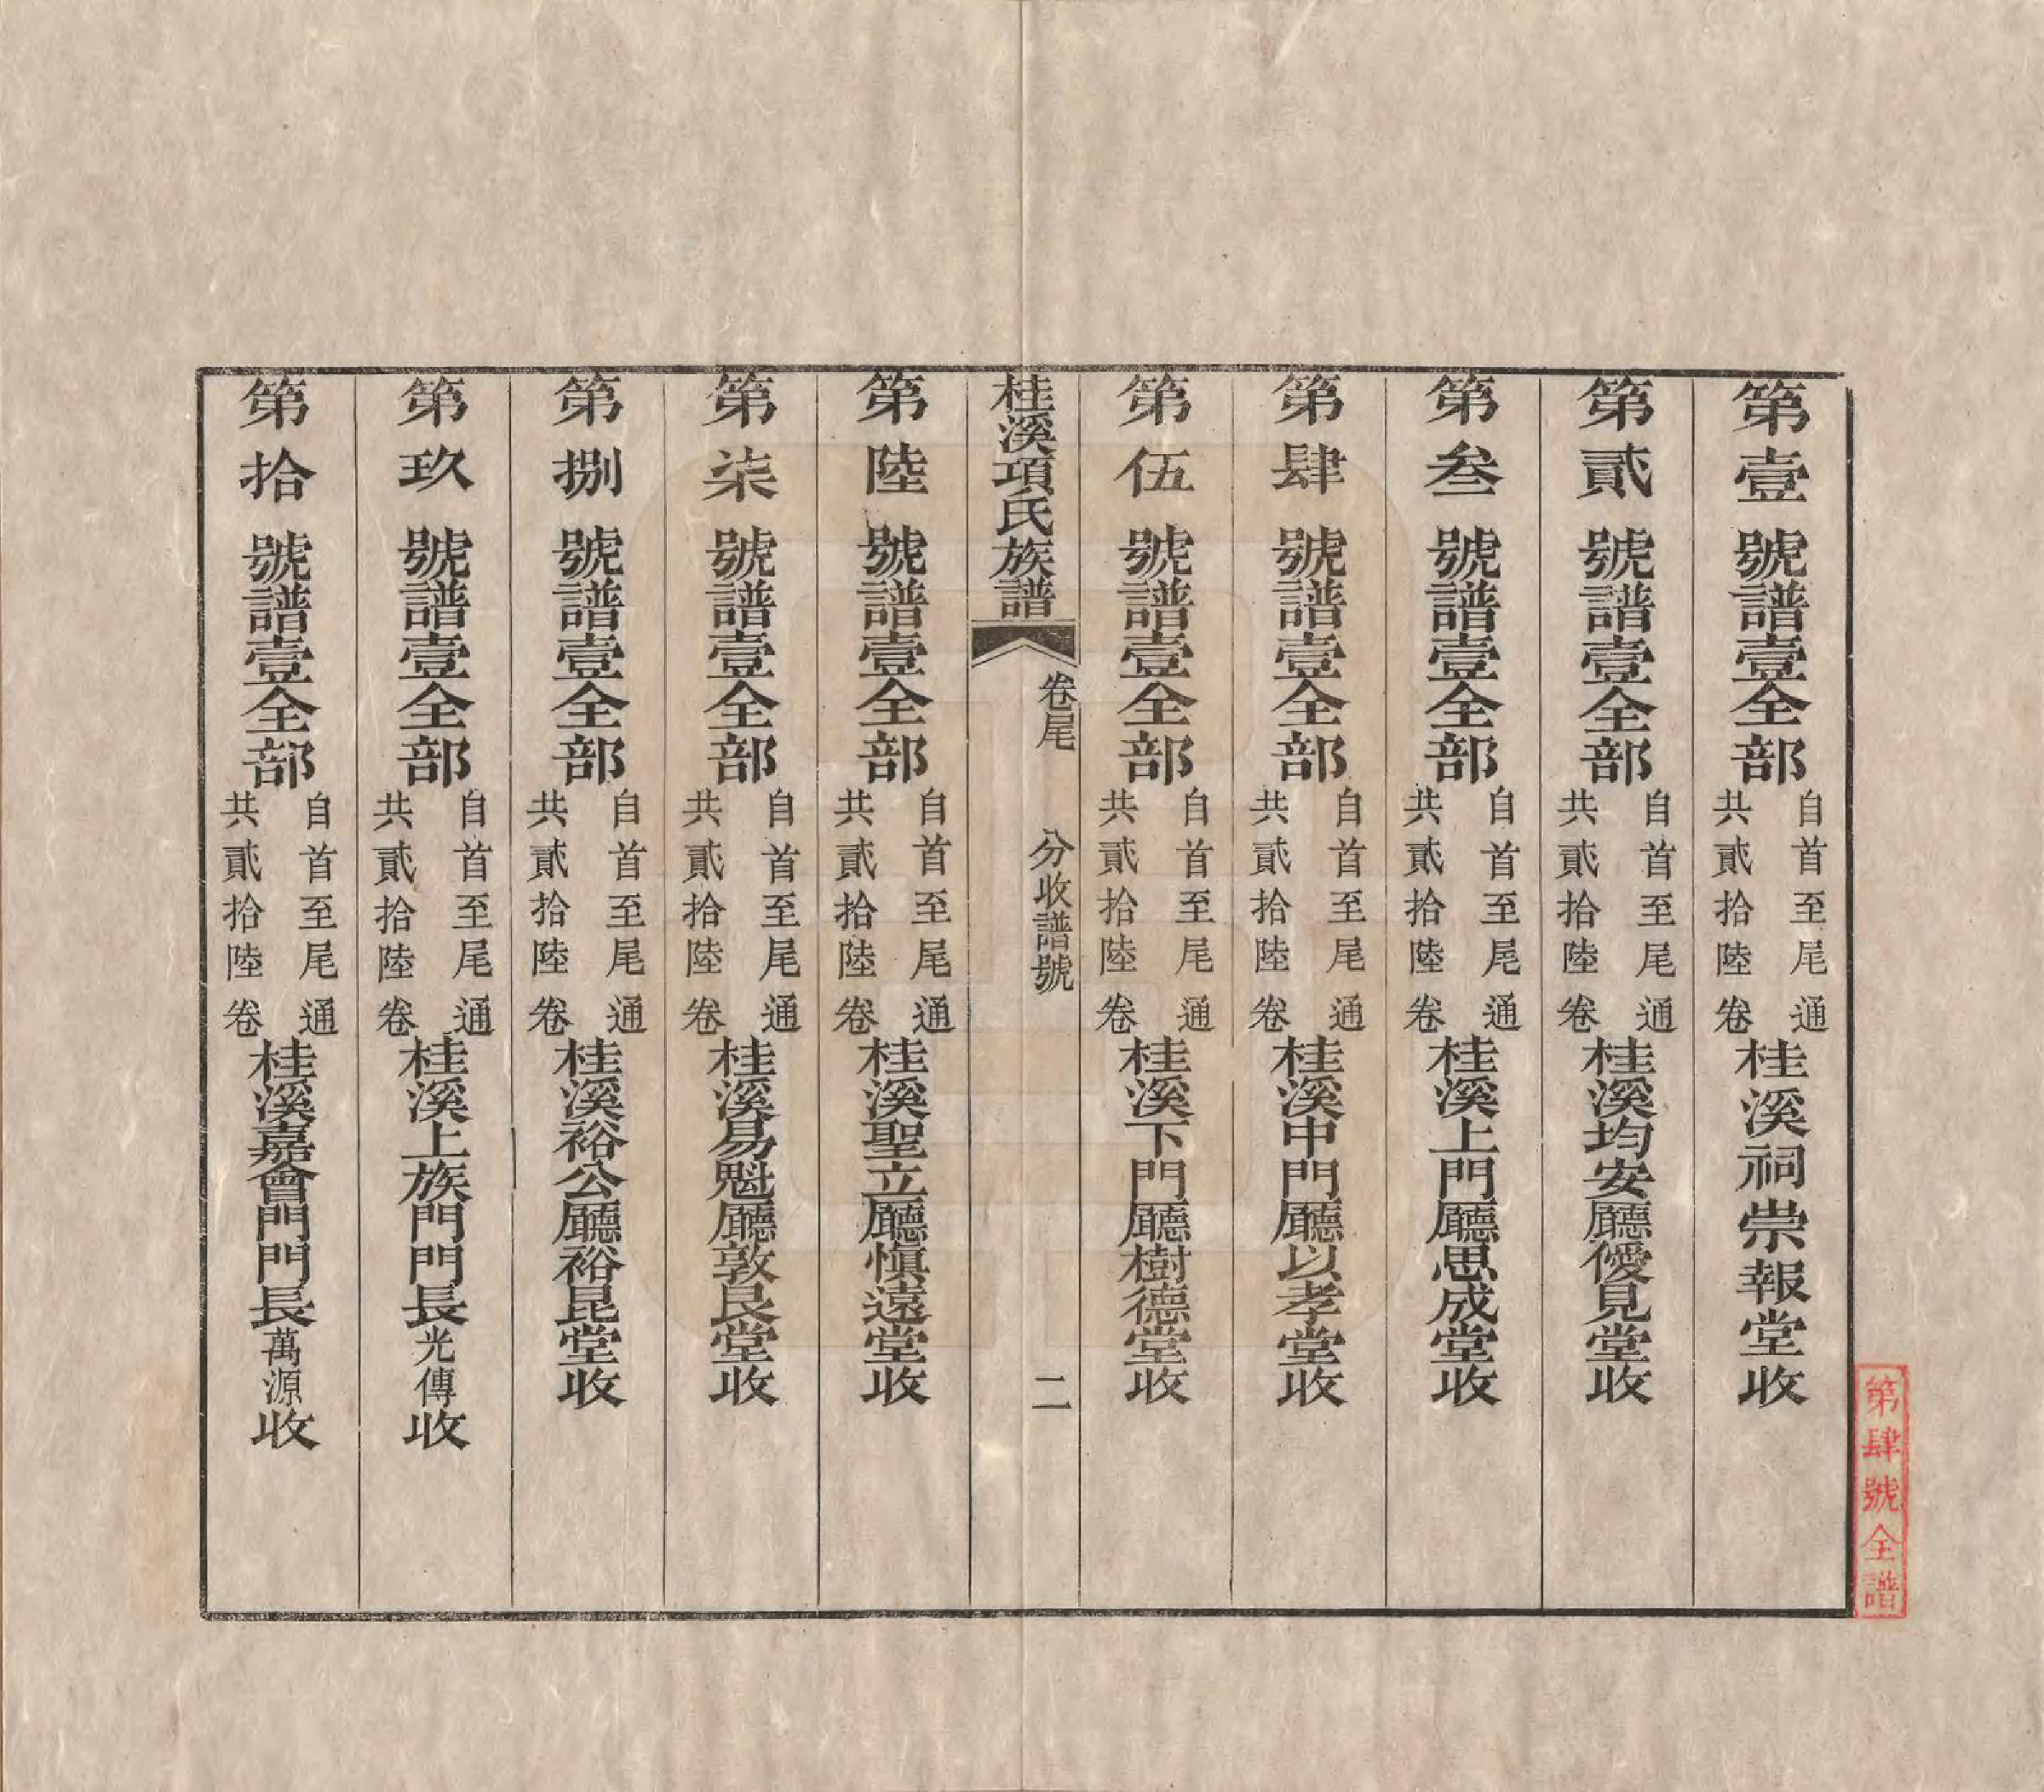 第壹號譜壹全部自首至尾通共貳拾陸卷桂溪祠崇報堂收
第貳號譜壹全部自首至尾通共貳拾陸卷桂溪均安廳僾見堂收
第叁號譜壹全部自首至尾通共貳拾陸卷桂溪上門廳思成堂收
第肆號譜壹全部自首至尾通共貳拾陸卷桂溪中門廳以孝堂收
第伍號譜壹全部自首至尾通共貳拾陸卷桂溪下門廳樹德堂收
桂溪項氏族譜 卷尾 分收譜號 二
第陸號譜壹全部自首至尾通共貳拾陸卷桂溪聖立廳慎遠堂收
第柒號譜壹全部自首至尾通共貳拾陸卷桂溪易魁廳敦艮堂收
第捌號譜壹全部自首至尾通共貳拾陸卷桂溪裕公廳裕昆堂收
第玖號譜壹全部自首至尾通共貳拾陸卷桂溪上族門門長光傳收
第拾號譜壹全部自首至尾通共貳拾陸卷桂溪嘉會門門長萬源收
第肆號全譜